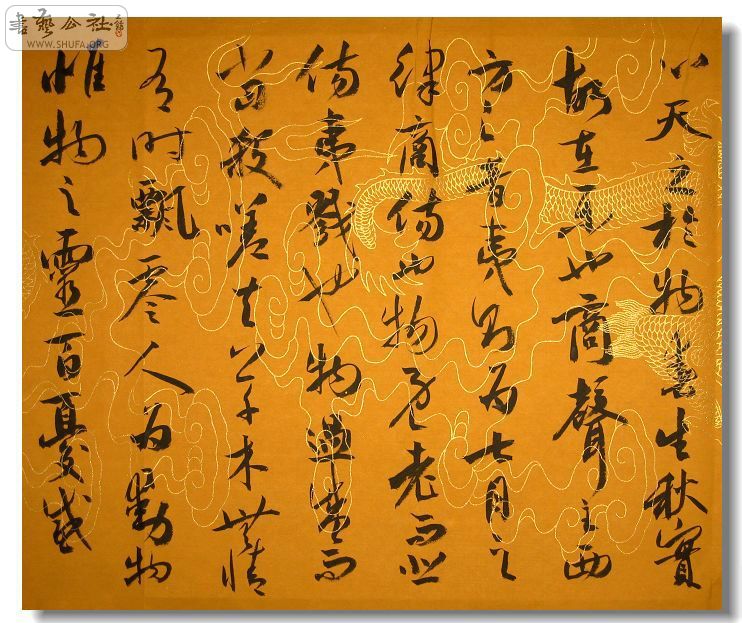 書藝公社
WWW.SHUFA.ORG
心天之於物春生秋實
故在樂也商聲主西
方之音夷則為七月之
律商傷也物既老而悲
傷夷戮也物過盛而
當殺嗟夫草木無情
有時飄零人為動物
惟物之靈百憂感